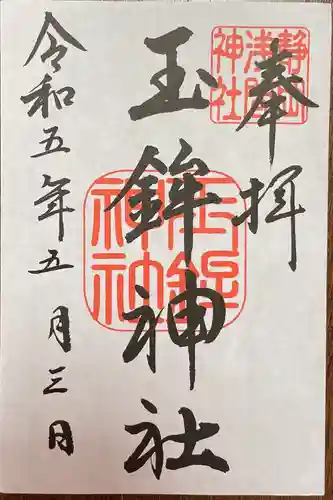 奉拝
静岡
浅間
神社
玉鉾神社
玉鉾
神社
令和五年五月三日